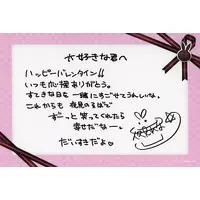 大好きな君へ
ハッピーバレンタイン!!
いつも応援ありがとう。
すてきな日を一緒にすごせてうれしいな。
これからも夜見のそばで
ずーっと笑ってくれたら
幸せだなー。
だいすきだよ♡